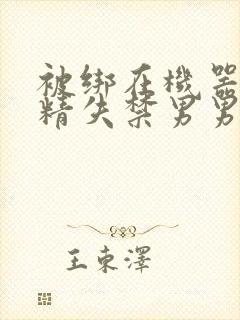 被绑在機器
精失禁男男
王東澤